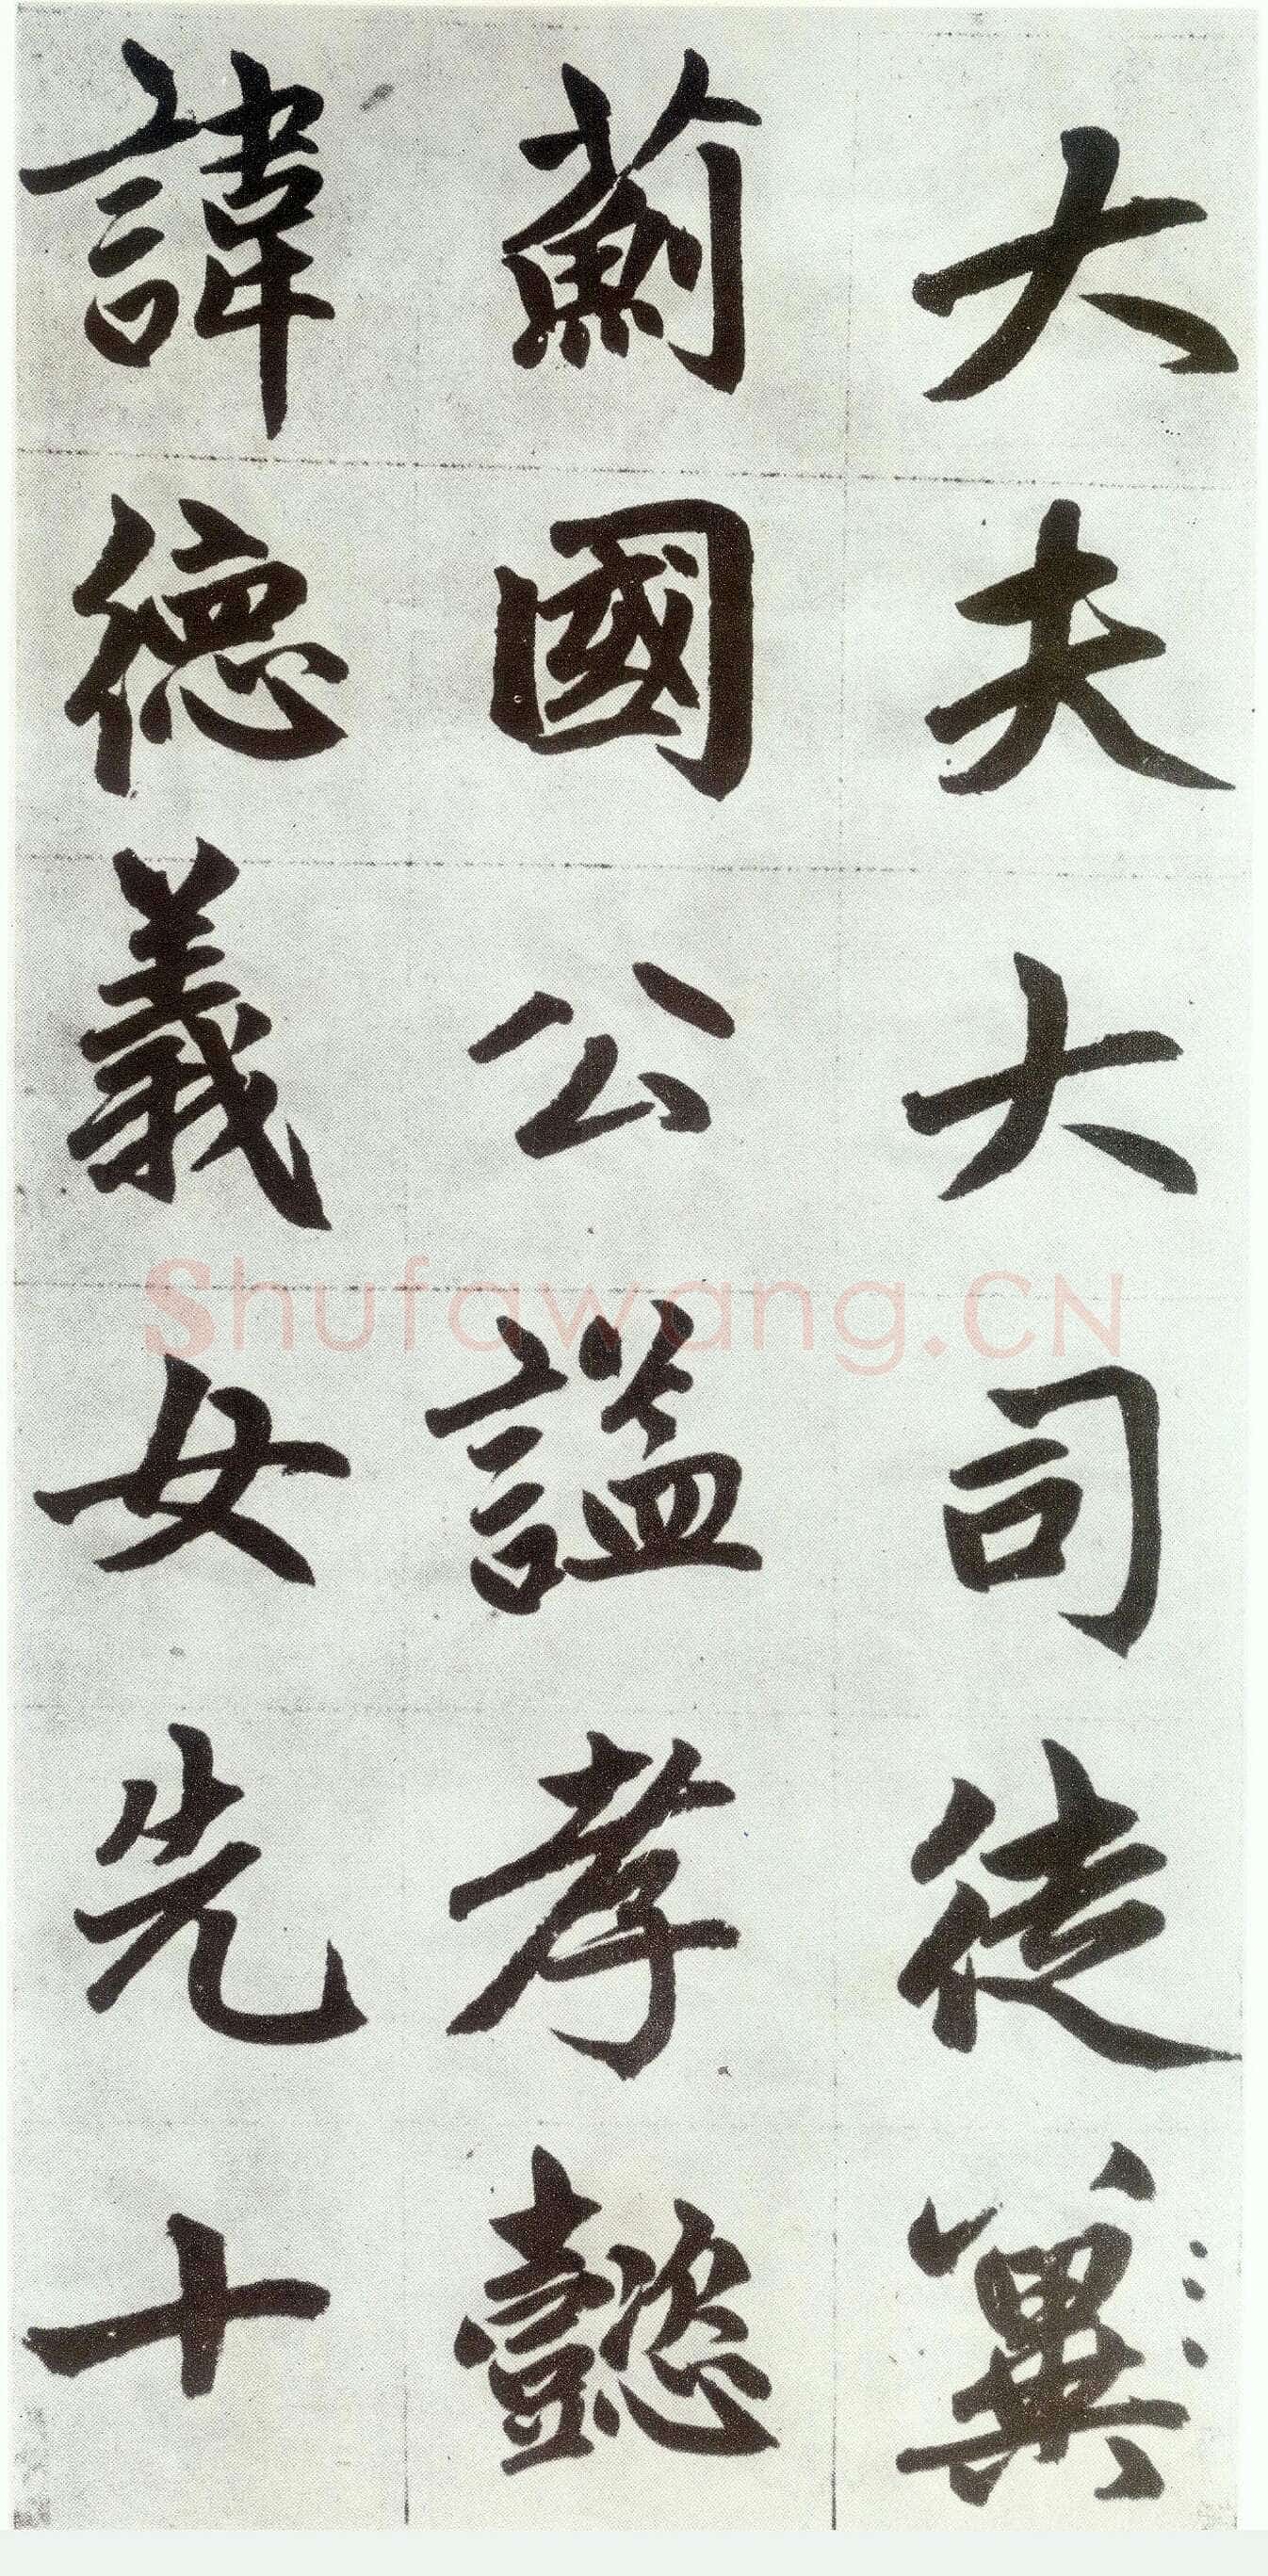 大夫大司徒冀
薊國公謚孝懿
諱德義女先十
Shufawang.CN